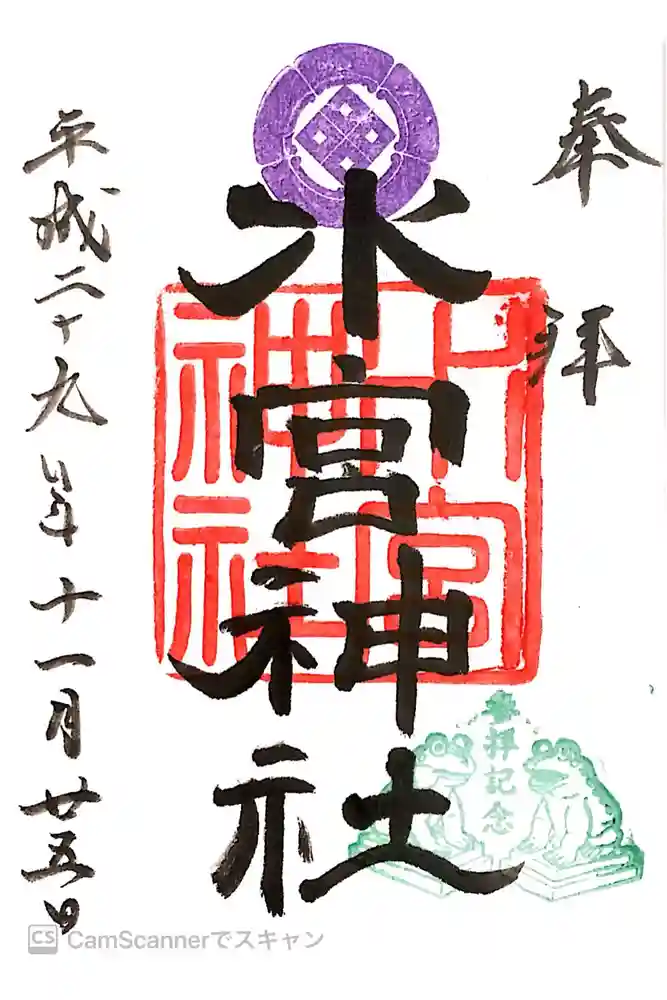 奉拝
水宮神社
水宮神社
参拝記念
平成二十九年十一月廿五日
CS CamScannerでスキャン